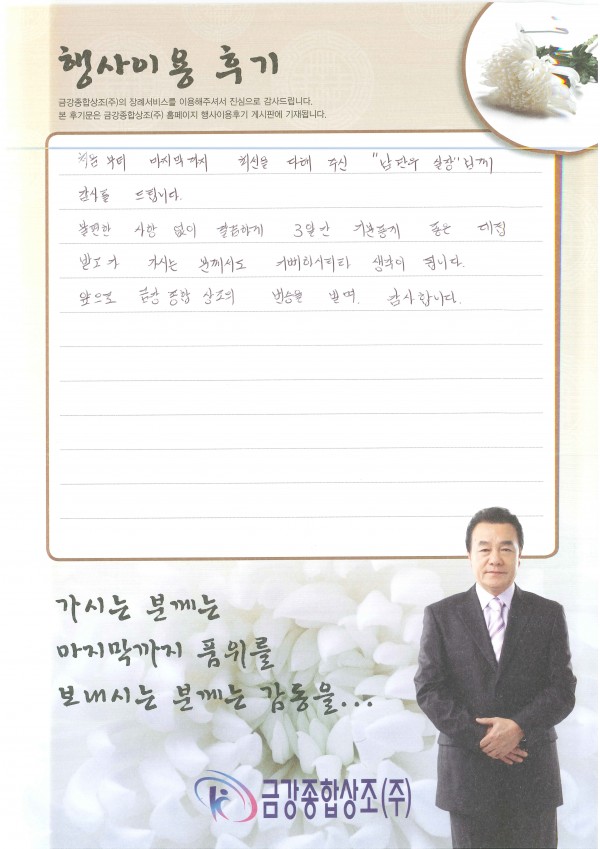 행사이용 후기
금강종합상조(주)의 장례서비스를 이용해주셔서 진심으로 감사드립니다.
본 후기문은 금강종합상조(주) 홈페이지 행사이용후기 게시판에 기재됩니다.
처음부터 마지막까지 최선을 다해 주신 "남단우 실장"님께
감사를 드립니다.
불편한 사항 없이 깔끔하게 3일간 기분좋게 좋은 대접
받고가 가시는 분께서도 기뻐하시리라 생각이 됩니다.
앞으로 금강 종합 상조의 번승을 빌며. 감사합니다.
가시는 분께는
마지막까지 품위를
보내시는 분께는 감동을...
금강종합상조(주)